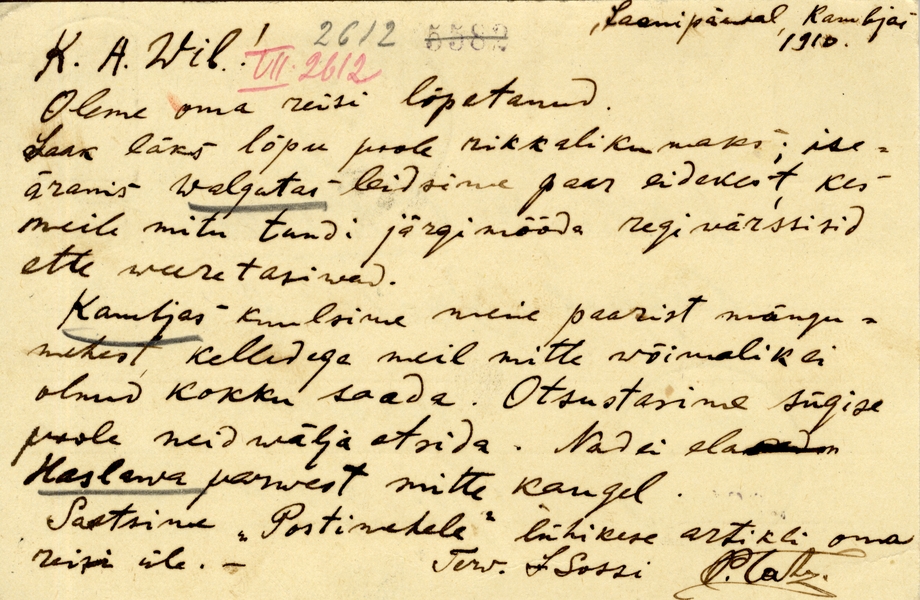 Jaanipäwal, Kambjas
1910.
2612 5582
K. A. Wil.!
VII 2612
Oleme oma reisi lõpetanud.
Saak läks lõpu poole rikkalikumaks; ise-
äranis Walgutas leidsime paar eidekest, kes
meile mitu tundi järgimööda regivärssisid
ette weeretasiwad.
Kambjas kuulsime meie paarist mängu-
mehest, kelledega meil mitte wõimalik ei
olnud kokku saada. Otsustasime sügise
poole neid wälja otsida. Nad ei ela
Haslawa parwest mitte kaugel.
Saatsime "Postimehele" lühikese artikli oma
reisi üle. –
Terw. J Sossi